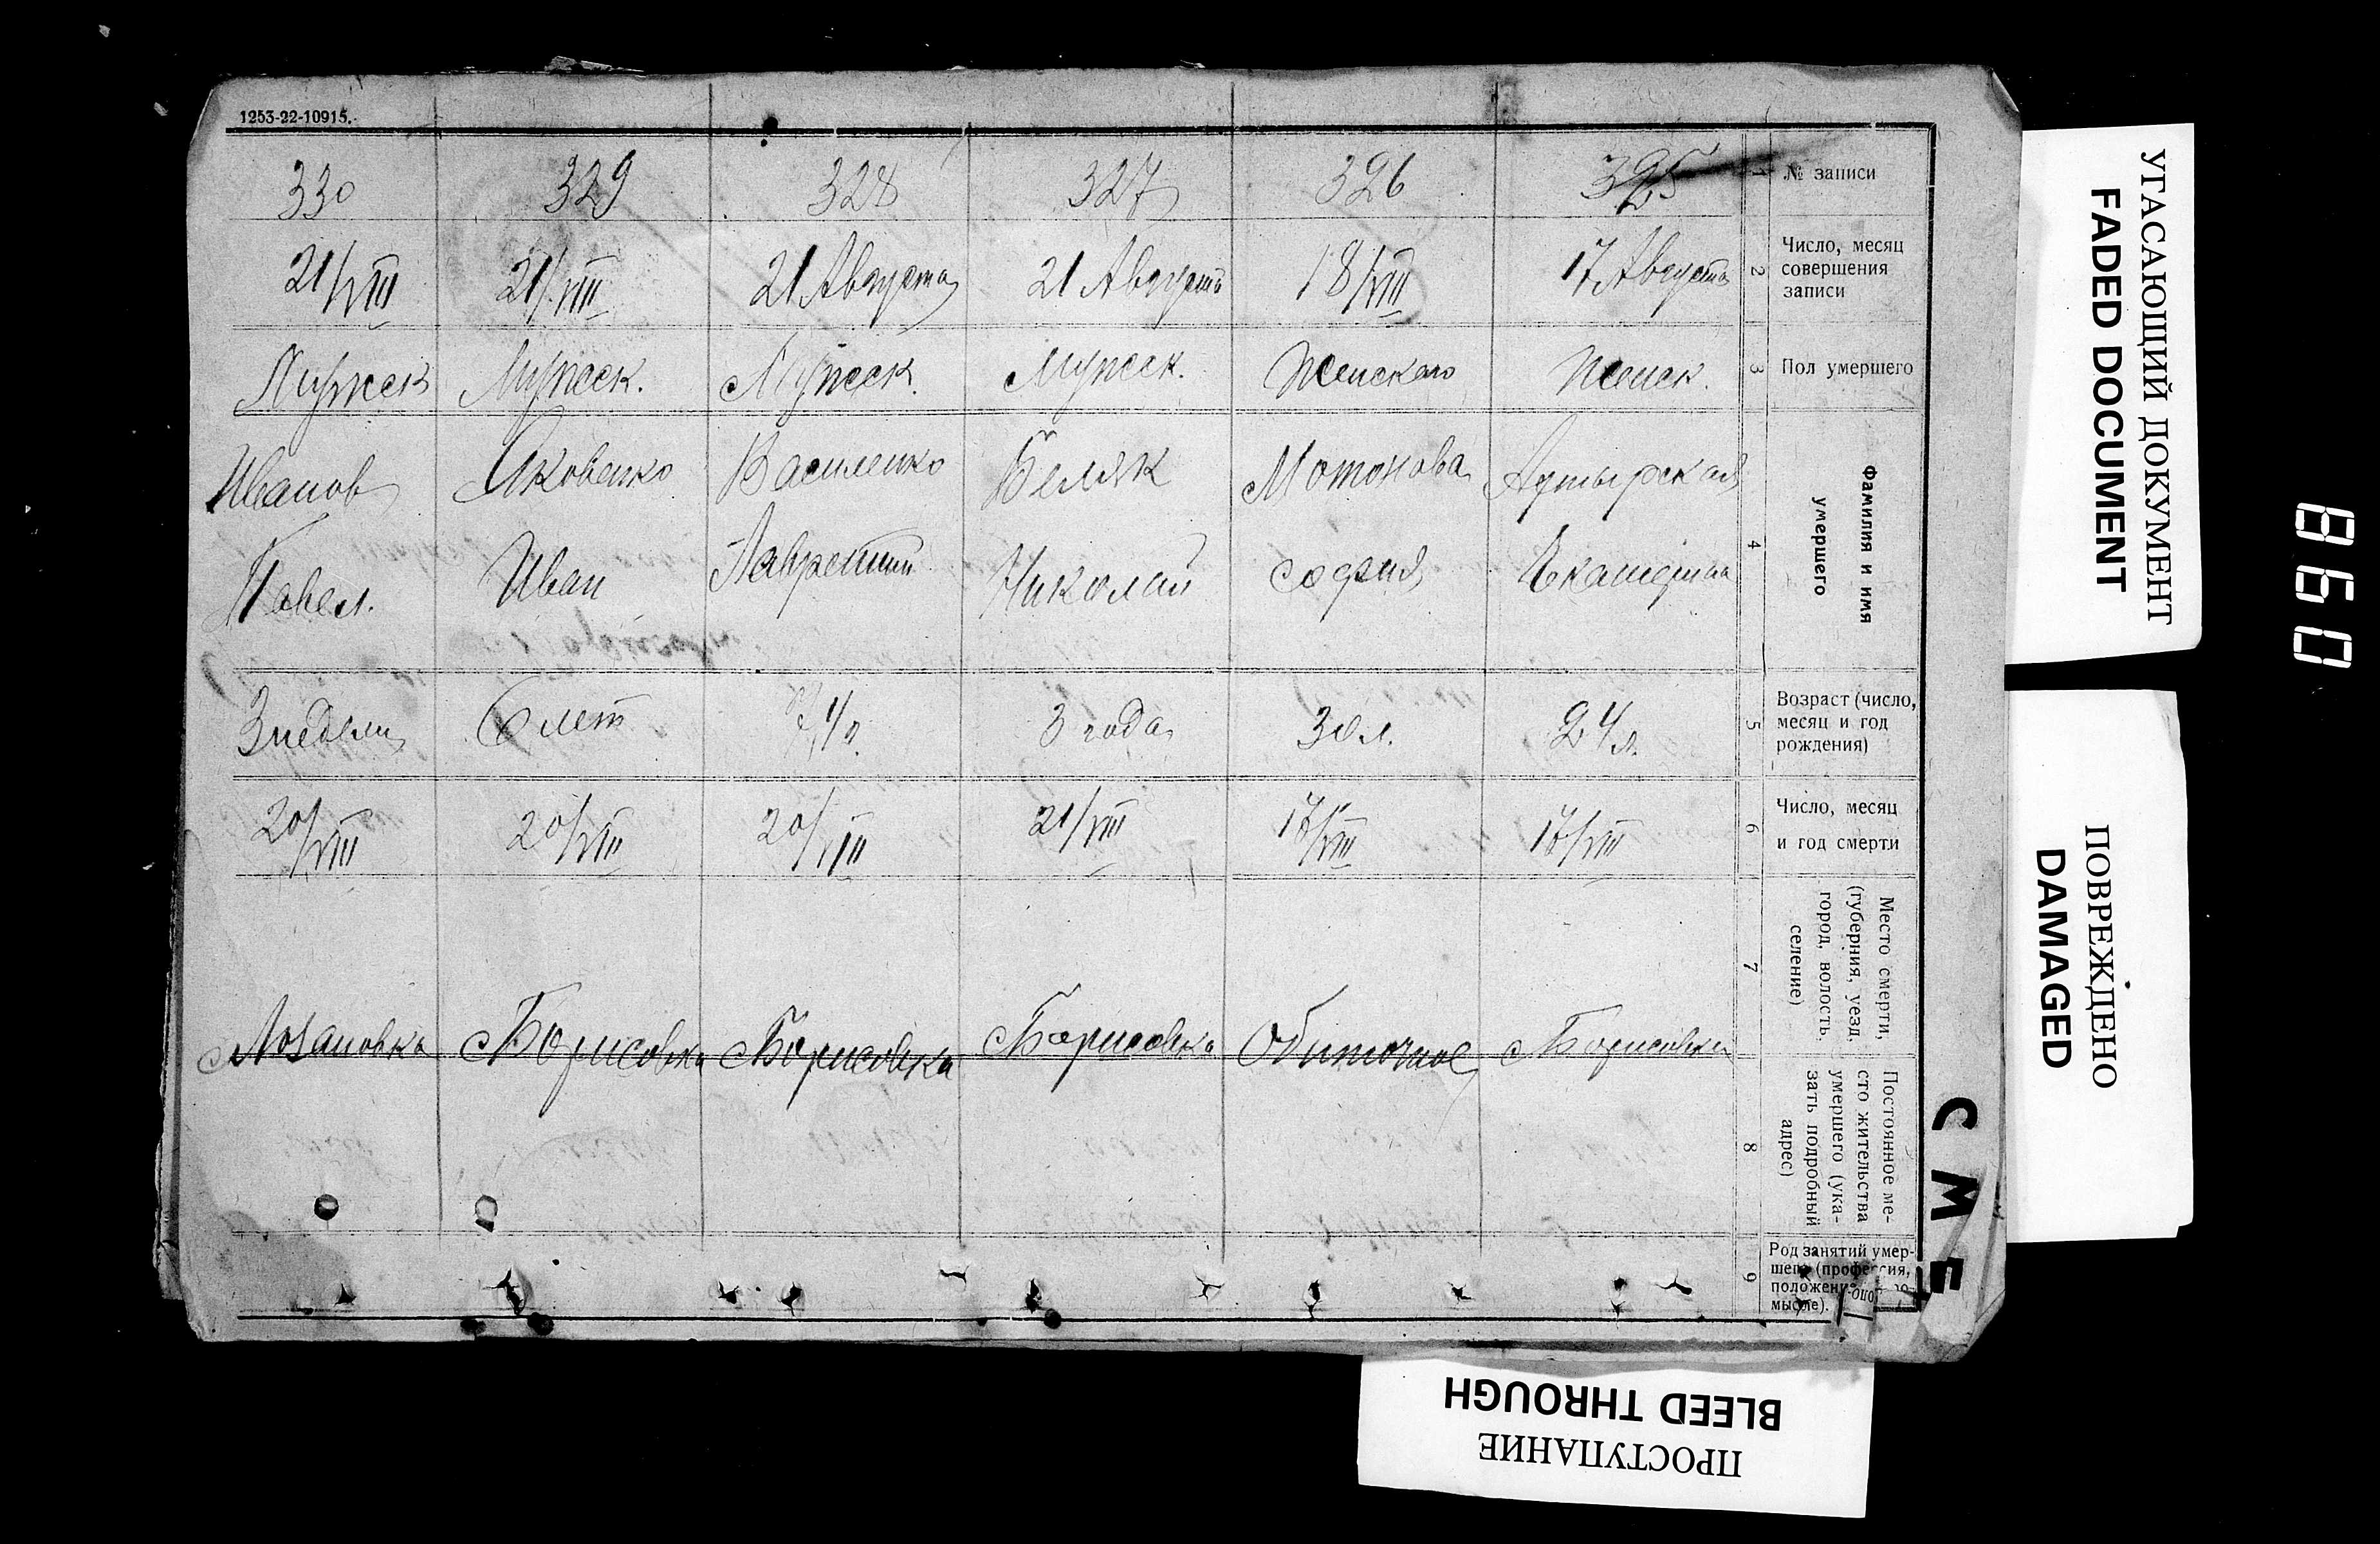 1253-22-10915.
330 329 328 327 326 325 1 № записи
21/VIII 21/VIII 21 Августа 21 Августа 18/VIII 17 Августа 2 Число, месяц
совершения
записи
Мужск Мужеск. Мужеск. Мужеск. Женского Женск. 3 Пол умершего
Иванов Яковенко Василенко Беляк Мотонова Ахтырская 4 Фамилия и имя
умершего
Павел. Иван Лаврентий Николай София Екатерина
3 недели 6 лет 3 года 30 л. 24 л. 5 Возраст (число,
месяц и год
рождения)
20/VIII 20/VIII 20/VIII 21/VIII 17/VIII 17/VIII 6 Число, месяц
и год смерти
7 Место смерти,
(губерния, уезд,
город, волость,
селение)
с Лозановка с Борисовка с Борисовка с Борисовка Обиточное с Борисовка
8 Постоянное ме-
сто жительства
умершего (ука-
зать подробный
адрес)
9 Род занятий умер-
шего (профессия,
положение
мысле).
УГАСАЮЩИЙ ДОКУМЕНТ
FADED DOCUMENT
ПОВРЕЖДЕНО
DAMAGED
С М Е
BLEED THROUGH
ПРОСТУПАНИЕ
860